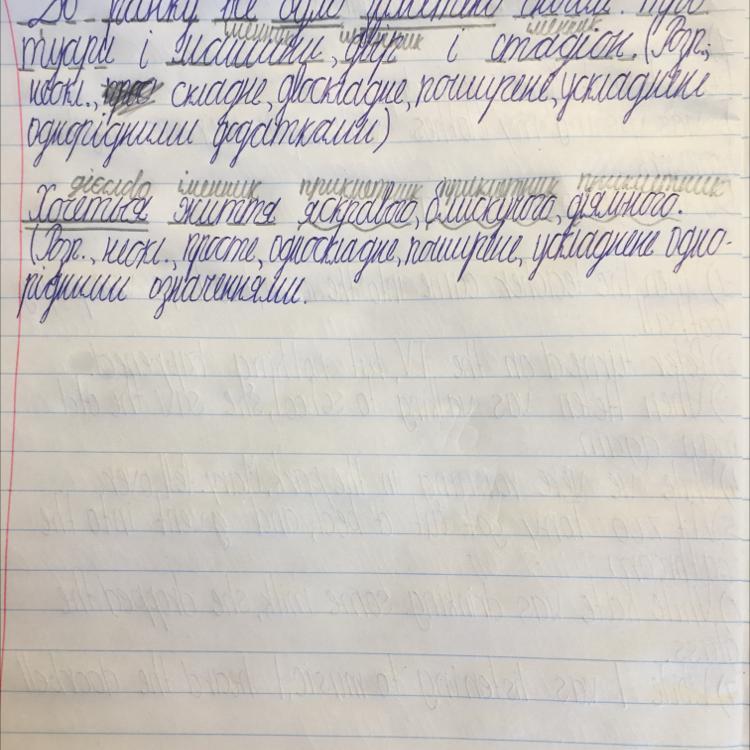 До ранку все було заметено снігом: тро-
іменник іменник іменник
туари і машини, парк і стадіон. (Розр.,
неокл., складне, двоскладне, поширене, ускладнене
однорідними додатками)
дієслово іменник прикметник прикметник прикметник
Хочеться життя яскравого, блискучого, діяльного.
(Розр., неокл., просте, односкладне, поширене, ускладнене одно-
рідними означеннями.